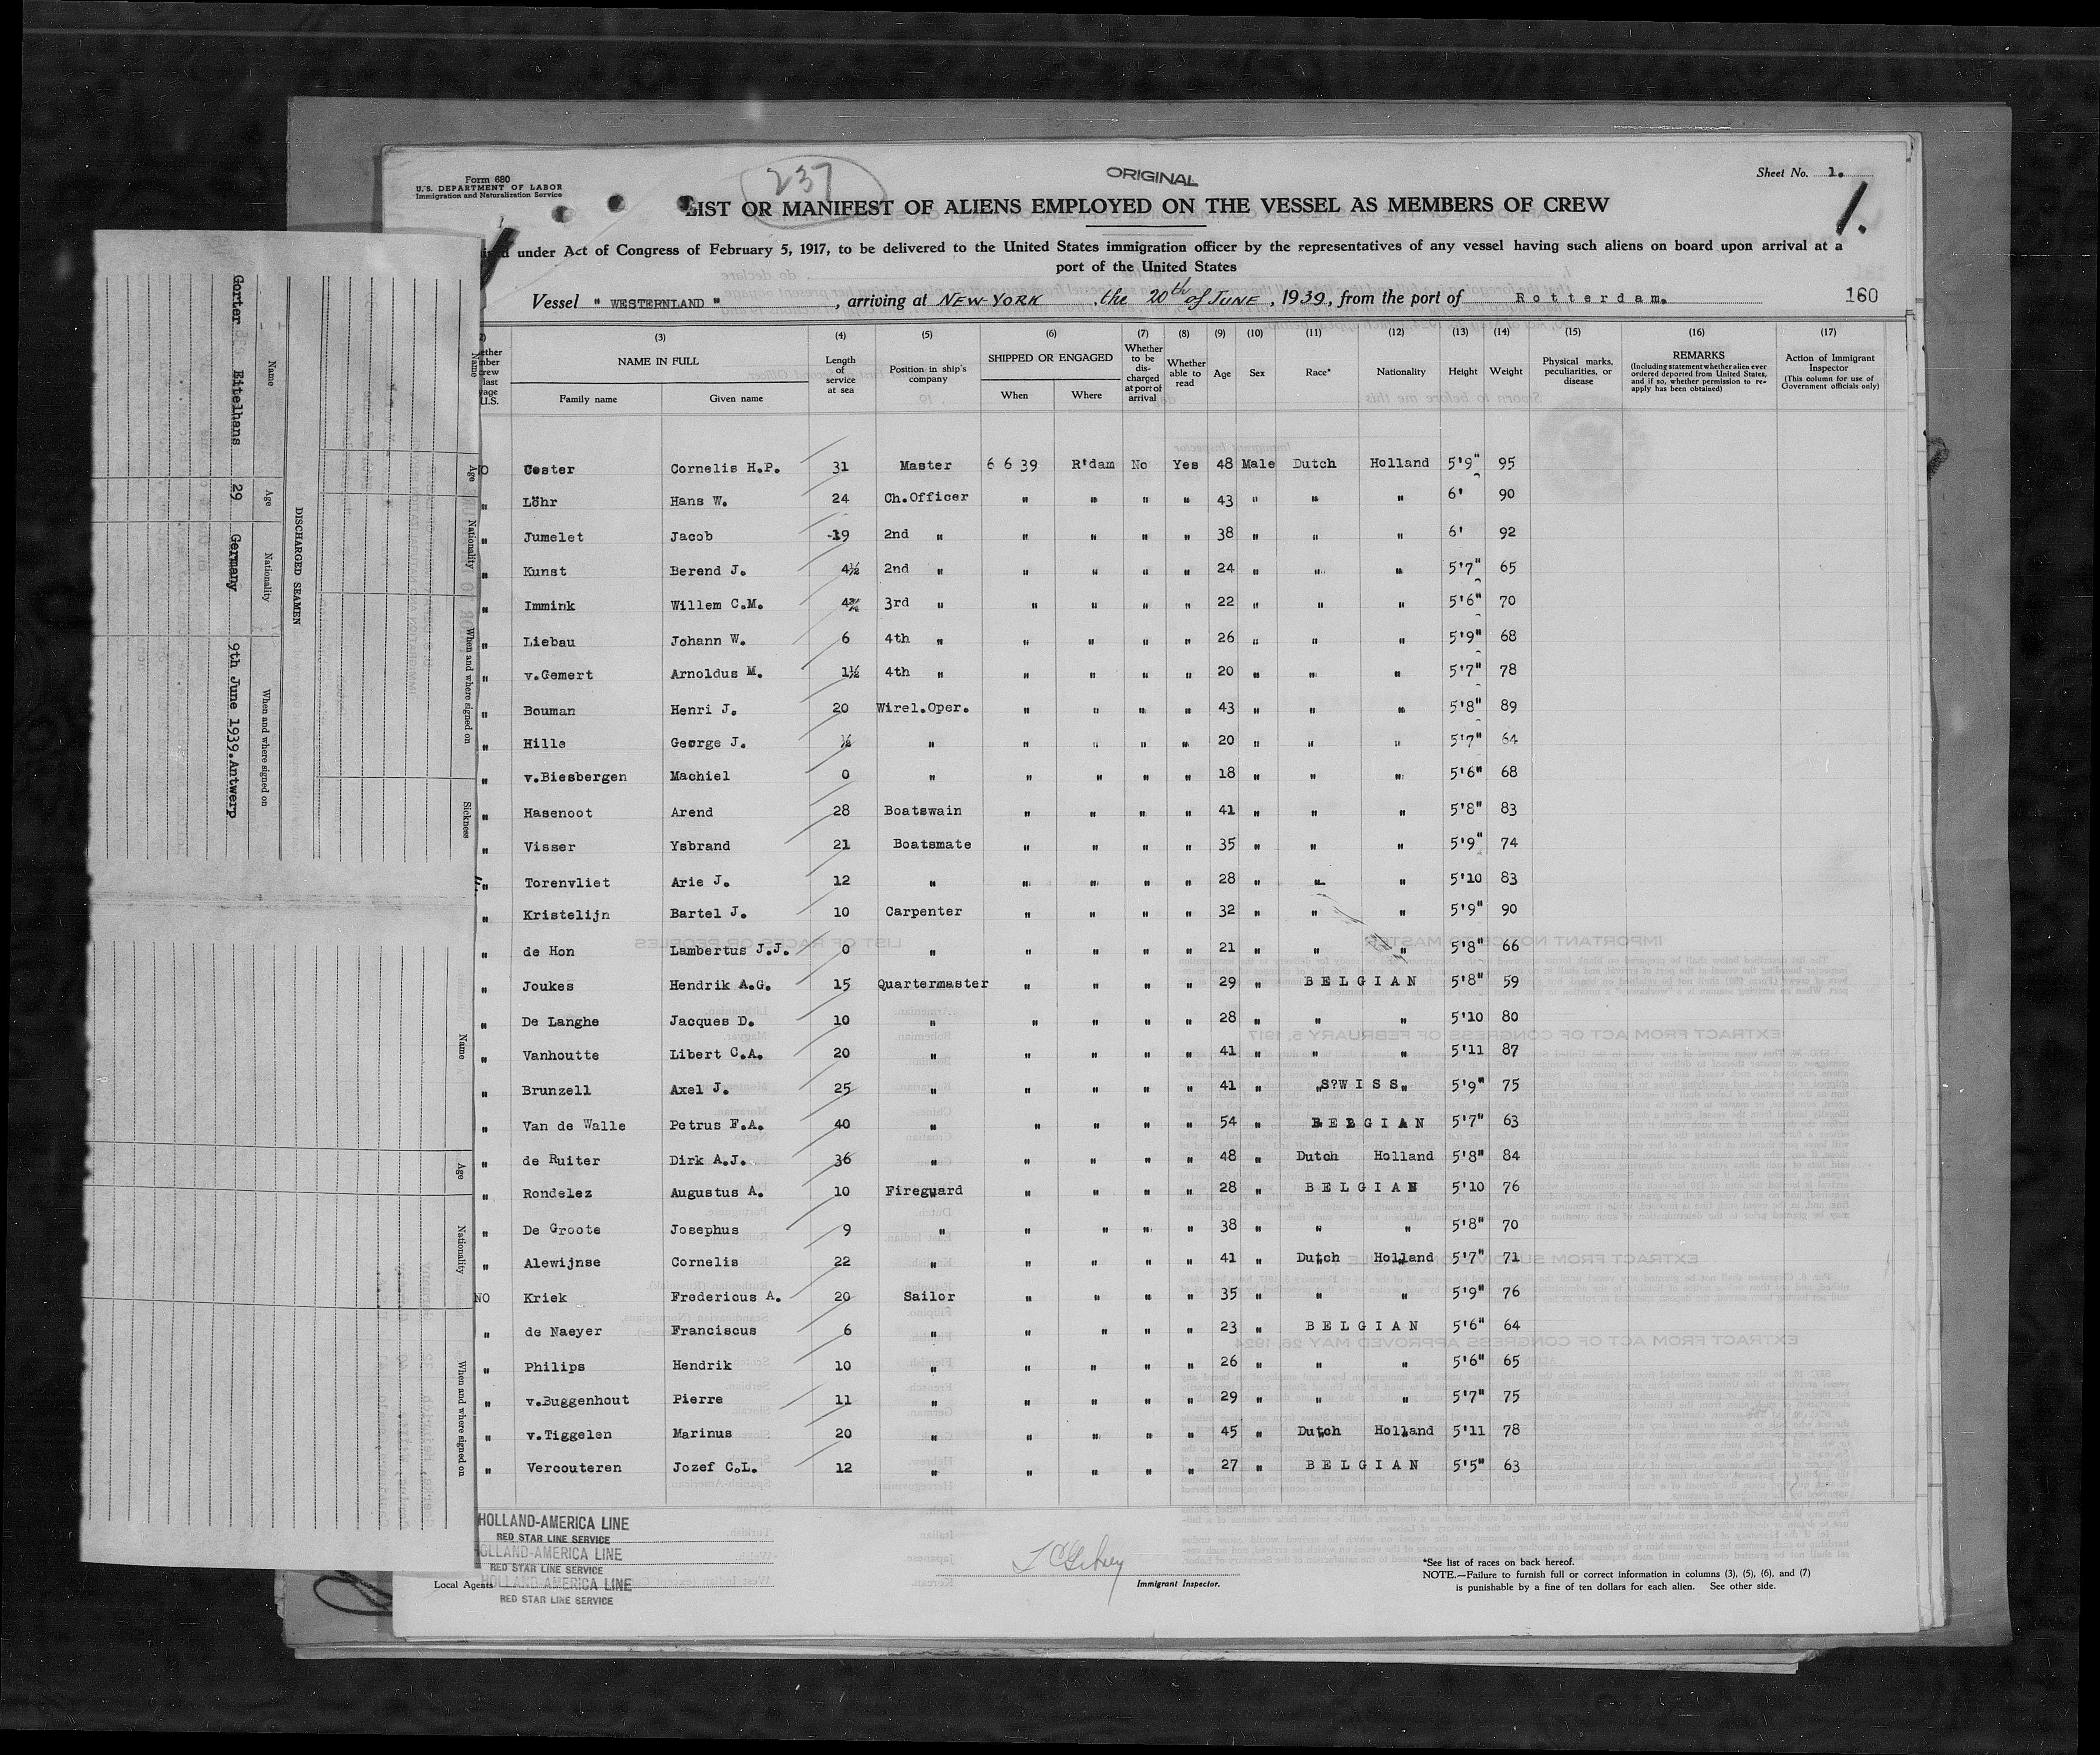 Form 680
U.S. DEPARTMENT OF LABOR
Immigration and Naturalization Service
237
ORIGINAL
Sheet No. 1.
1.
LIST OR MANIFEST OF ALIENS EMPLOYED ON THE VESSEL AS MEMBERS OF CREW
under Act of Congress of February 5, 1917, to be delivered to the United States immigration officer by the representatives of any vessel having such aliens on board upon arrival at a
port of the United States
Vessel " WESTERNLAND ", arriving at NEW-YORK, the 20th of JUNE, 1939, from the port of Rotterdam.
160
(3) (4) (5) (6) (7) (8) (9) (10) (11) (12) (13) (14) (15) (16) (17)
NAME IN FULL
Family name Given name
Length of service at sea
Position in ship's company
SHIPPED OR ENGAGED
When Where
Whether to be discharged at port of arrival
Whether able to read
Age Sex Race* Nationality Height Weight
Physical marks, peculiarities, or disease
REMARKS
(Including statement whether alien ever ordered deported from United States, and if so, whether permission to reapply has been obtained)
Action of Immigrant Inspector
(This column for use of Government officials only)
Cornelis H.P. 31 Master 6 6 39 R'dam No Yes 48 Male Dutch Holland 5'9" 95
" Löhr Hans W. 24 Ch.Officer " " " " 43 " " " 6' 90
" Jumelet Jacob 19 2nd " " " " " 38 " " " 6' 92
" Kunst Berend J. 4½ 2nd " " " " " 24 " " " 5'7" 65
" Immink Willem C.M. 3rd " " " " " 22 " " " 5'6" 70
" Liebau Johann W. 6 4th " " " " " 26 " " " 5'9" 68
" v.Gemert Arnoldus M. 1½ 4th " " " " " 20 " " " 5'7" 78
" Bouman Henri J. 20 Wirel.Oper. " " " " 43 " " " 5'8" 89
" Hille George J. ½ " " " " " 20 " " " 5'7" 64
" v.Biesbergen Machiel 0 " " " " " 18 " " " 5'6" 68
" Hasenoot Arend 28 Boatswain " " " " 41 " " " 5'8" 83
" Visser Ysbrand 21 Boatsmate " " " " 35 " " " 5'9" 74
" Torenvliet Arie J. 12 " " " " " 28 " " " 5'10 83
" Kristelijn Bartel J. 10 Carpenter " " " " 32 " " " 5'9" 90
" de Hon Lambertus J.J. 0 " " " " " 21 " " " 5'8" 66
" Joukes Hendrik A.G. 15 Quartermaster " " " " 29 " BELGIAN 5'8" 59
" De Langhe Jacques D. 10 " " " " " 28 " " " 5'10 80
" Vanhoutte Libert C.A. 20 " " " " " 41 " " " 5'11 87
" Brunzell Axel J. 25 " " " " " 41 " "S?WISS" 5'9" 75
" Van de Walle Petrus F.A. 40 " " " " " 54 " BELGIAN 5'7" 63
" de Ruiter Dirk A.J. 36 " " " " " 48 " Dutch Holland 5'8" 84
" Rondelez Augustus A. 10 Fireguard " " " " 28 " BELGIAN 5'10 76
" De Groote Josephus 9 " " " " " 38 " " " 5'8" 70
" Alewijnse Cornelis 22 " " " " " 41 " Dutch Holland 5'7" 71
NO Kriek Fredericus A. 20 Sailor " " " " 35 " " " 5'9" 76
" de Naeyer Franciscus 6 " " " " " 23 " BELGIAN 5'6" 64
" Philips Hendrik 10 " " " " " 26 " " " 5'6" 65
" v.Buggenhout Pierre 11 " " " " " 29 " " " 5'7" 75
" v.Tiggelen Marinus 20 " " " " " 45 " Dutch Holland 5'11 78
" Vercouteren Jozef C.L. 12 " " " " " 27 " BELGIAN 5'5" 63
HOLLAND-AMERICA LINE
RED STAR LINE SERVICE
HOLLAND-AMERICA LINE
RED STAR LINE SERVICE
Local Agents HOLLAND-AMERICA LINE
RED STAR LINE SERVICE
Immigrant Inspector.
*See list of races on back hereof.
NOTE.—Failure to furnish full or correct information in columns (3), (5), (6), and (7)
is punishable by a fine of ten dollars for each alien. See other side.
DISCHARGED SEAMEN
Name Age Nationality When and where signed on
Gorter Eitelhans 29 Germany 9th June 1939.Antwerp
Name Age Nationality When and where signed on Sickness
Name Age Nationality When and where signed on